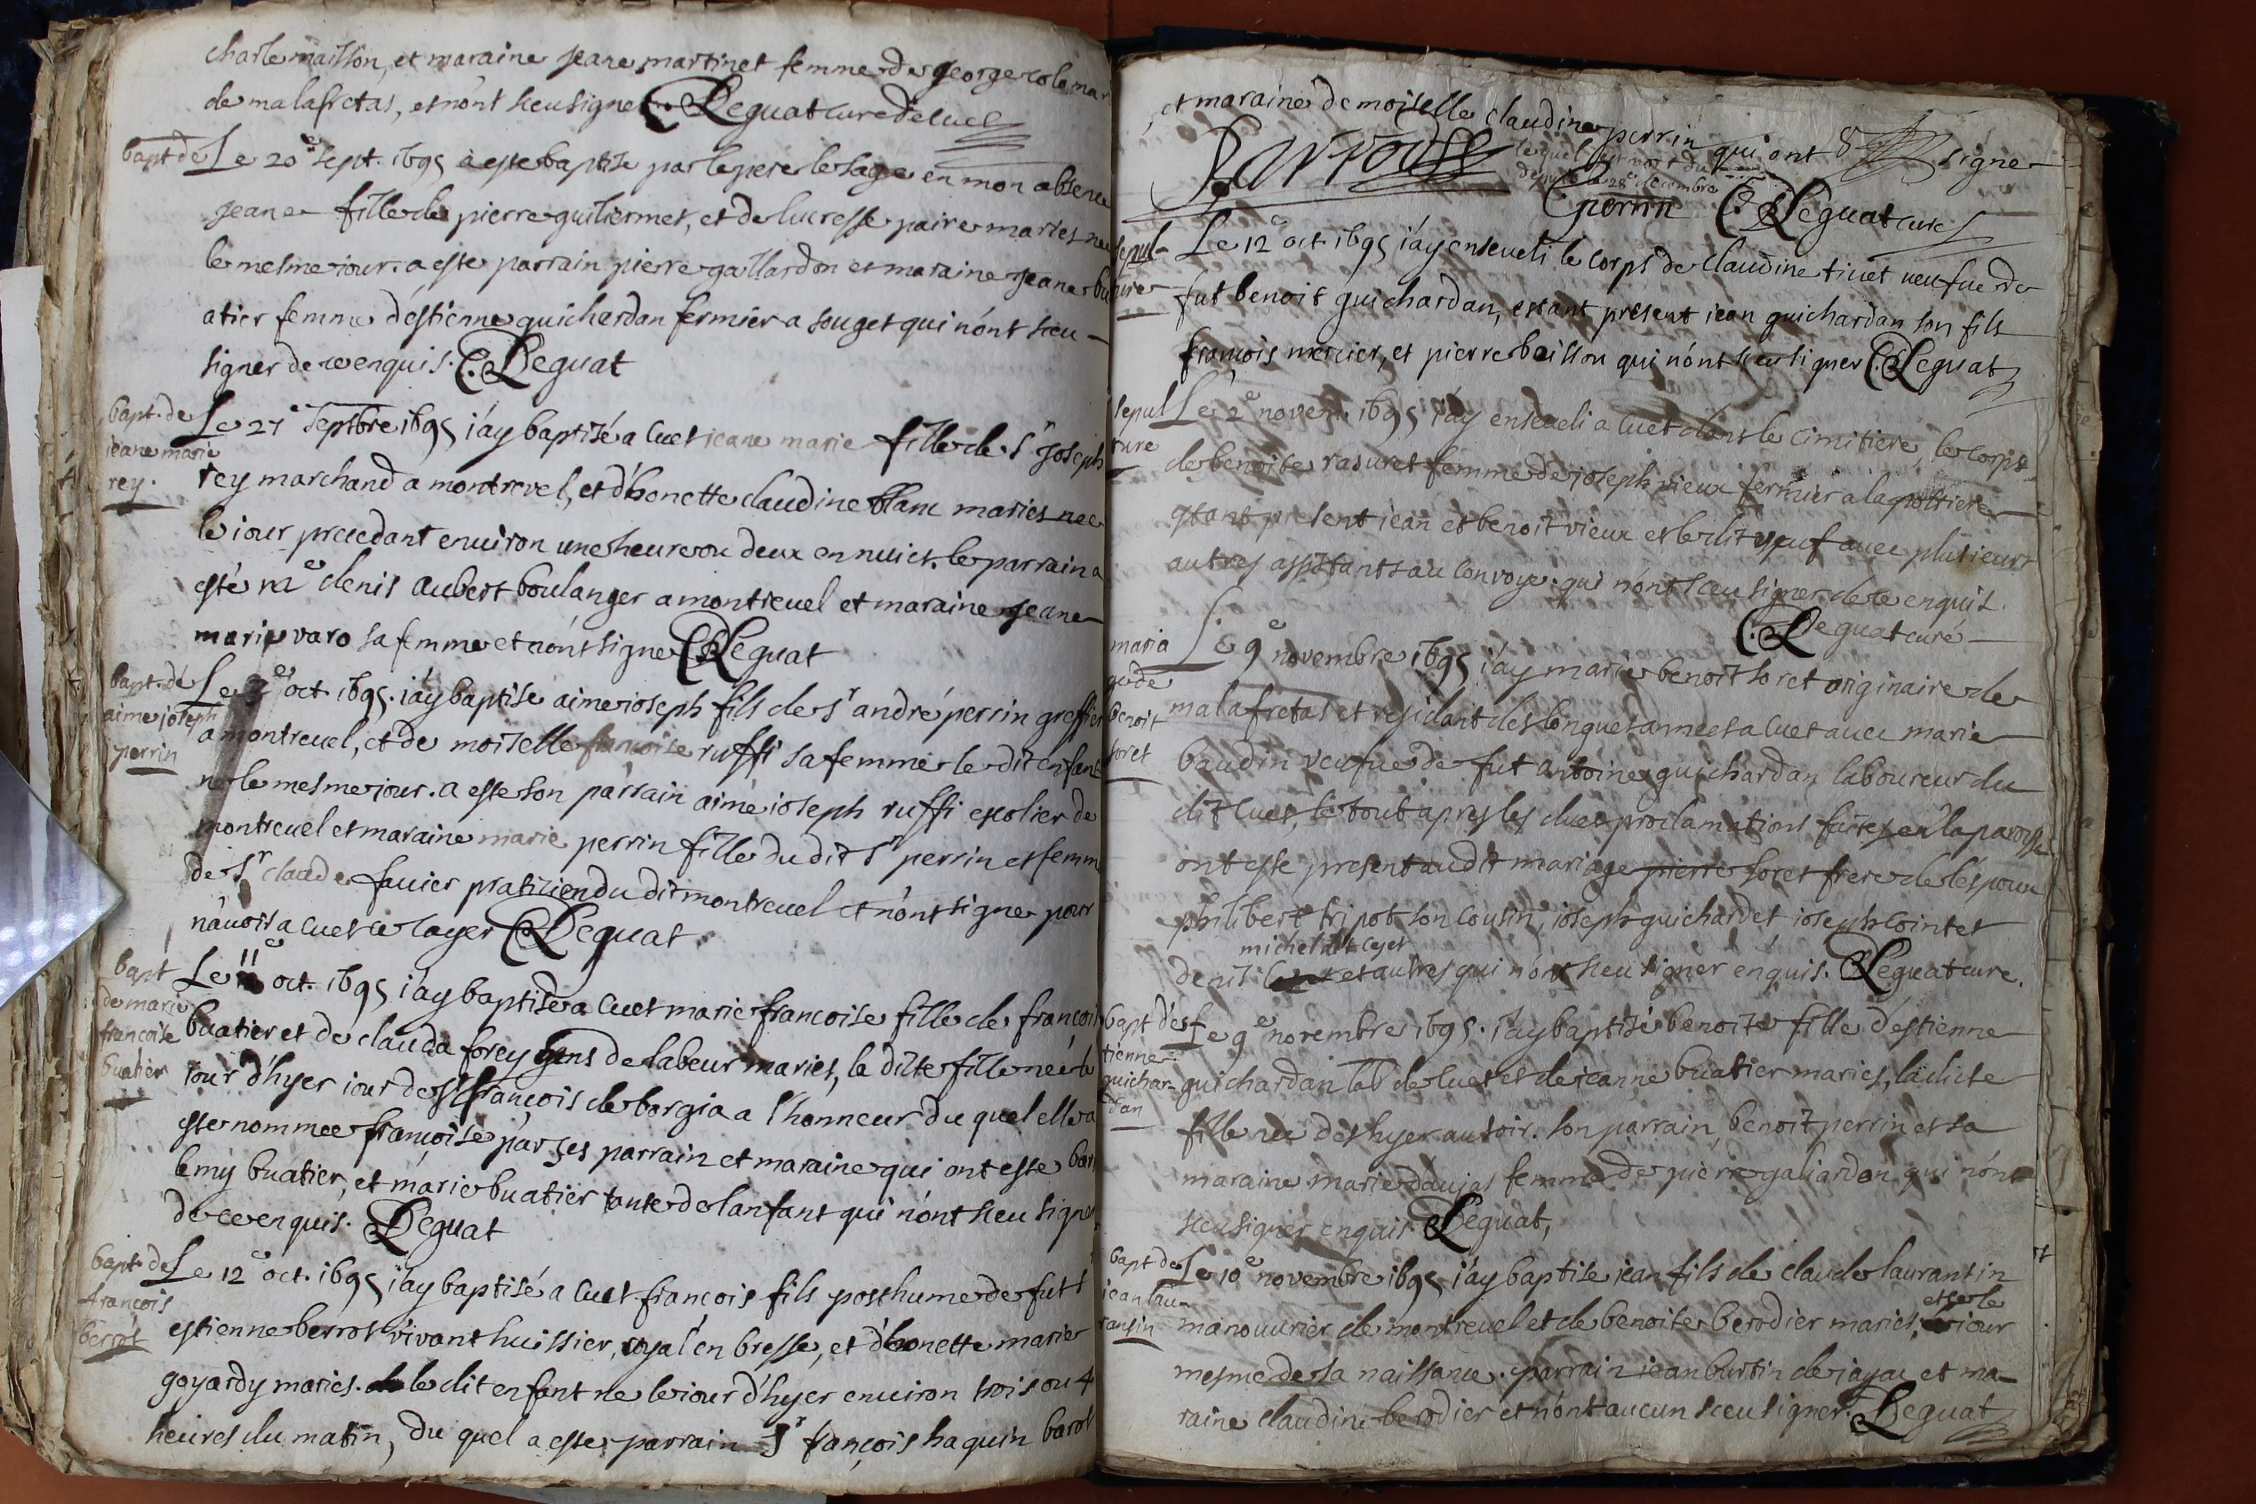 charle maisson, et maraine jeane martinet femme de george colemar
de malafretas, et nont sceu signer C. Leguat curé de cuet
bapt de Le 20e sept. 1695 a este baptise par le pere le sage en mon absence
jeane fille de pierre guillermet, et de lucresse paire maries nee
le mesme iour. a este parrain pierre gallardon et maraine jeane bu
atier femme d'estienne guichardan fermier a souget qui n'ont sceu
signer de ce enquis. C. Leguat
bapt. de
jeane marie
rey.
Le 27e septbre 1695 i'ay baptisé a cuet jeane marie fille de sr joseph
rey marchand a montrevel, et d'honette claudine blanc maries nee
le iour precedant environ une heure ou deux en nuict. le parrain a
esté me denis aubert boulanger a montrevel et maraine jeane
marie varo sa femme et n'ont signe C. Leguat
bapt. de
aime joseph
perrin
Le oct. 1695. i'ay baptise aime joseph fils de sr andré perrin greffier
a montrevel, et de moiselle françoise ruffi sa femme le dit enfant
né le mesme iour. a este son parrain aimé joseph ruffi escolier de
montrevel et maraine marie perrin fille du dit sr perrin et femme
de sr claude favier pratizien du dit montrevel et n'ont signe pour
n'avoir a cuet ce layer C. Leguat
bapt
de marie
françoise
buatier
Le 11e oct. 1695 i'ay baptisé a cuet marie françoise fille de françois
buatier et de clauda forey gens de labeur maries, la dite fille née le
iour d'hyer iour de st françois de borgia a l'honneur du quel elle a
este nommee françoise par ses parrain et maraine qui ont este bart
lemy buatier, et marie buatier tante de lanfant qui n'ont sceu signer
de ce enquis. C. Leguat
bapt. de
françois
berrot
Le 12e oct. 1695 i'ay baptisé a cuet françois fils posthume de fut
estienne berrot vivant huissier royal en bresse, et d'honette marie
goyardy maries. le dit enfant né le iour d'hyer environ trois ou 4
heures du matin, du quel a este parrain sr françois haquin barot
et maraine de moiselle claudine perrin qui ont signe
Larrouss
lequel est mort du
depuis le 28e decembre
C perrin C. Leguat curé
sepul-
ture
Le 12e oct. 1695 i'ay enseveli le corps de claudine tivet veufue de
fut benoit guichardan, estant present jean guichardan son fils
françois mercier, et pierre boisson qui n'ont sceu signer C. Leguat
sepul
ture
Le 2e novem. 1695 i'ay enseveli a cuet dans le cimitiere, le corps
de benoite rasuret femme de joseph vieux fermier a la poissiere
estant present jean et benoit vieux et le dit veuf avec plusieurs
autres assistants au convoye. qui n'ont sceu signer de ce enquis.
C. Leguat curé
maria
ge de
benoit
soret
Le 9e novembre 1695 i'ay marie benoit soret originaire de
malafretas et residant des longues annees a cuet avec marie
baudin veufue de fut antoine guichardan laboureur du
dit cuet, le tout apres les deux proclamations faites en la paroisse
ont este present au dit mariage pierre soret frere de l'espoux
philibert tripot son cousin, joseph guichard et joseph cointet
michel dit cuet
denis et autres qui n'ont sceu signer enquis. C. Leguat cure.
bapt d'es
tienne
guichar-
dan
Le 9e novembre 1695. i'ay baptisé benoite fille d'estienne
guichardan lab. de cuet et de jeanne buatier maries, la dicte
fille née des hyer au soir. son parrain benoit perrin et sa
maraine marie daujas femme de pierre galiardon qui n'ont
sceu signer enquis C. Leguat,
bapt de
jean lau-
rantin
Le 10e novembre 1695 i'ay baptise jean fils de claude laurantin
et se le
manouvrier de montrevel et de benoite berodier maries, iour
mesme de sa naissance. parrain jean burtin de jayac et ma-
raine claudine berodier et n'ont aucun sceu signer. C. Leguat